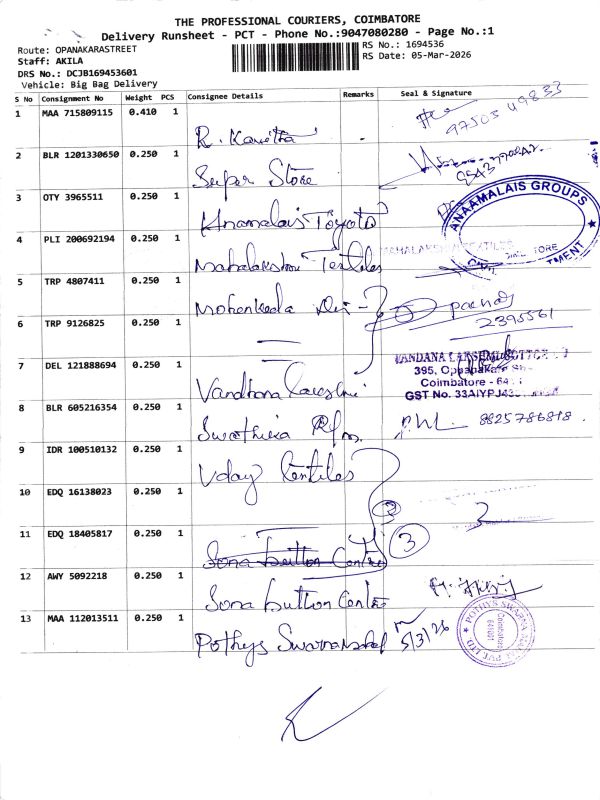 THE PROFESSIONAL COURIERS, COIMBATORE
Delivery Runsheet - PCT - Phone No.:9047080280 - Page No.:1
Route: OPANAKARASTREET
RS No.: 1694536
Staff: AKILA
RS Date: 05-Mar-2026
DRS No.: DCJB169453601
Vehicle: Big Bag Delivery
S No Consignment No Weight PCS Consignee Details Remarks Seal & Signature
1 MAA 715809115 0.410 1 R. Kavitha - 97503 49833
2 BLR 1201330650 0.250 1 Super Store
3 OTY 3965511 0.250 1 Anamalais Toyota ANAAMALAIS GROUPS
4 PLI 200692194 0.250 1 Mahalakshmi Textiles MAHALAKSHMI TEXTILES
5 TRP 4807411 0.250 1
6 TRP 9126825 0.250 1 2395561
7 DEL 121888694 0.250 1 Vandhana Lakshmi VANDANA LAKSHMI COTTON
395, Oppanakara St
Coimbatore - 641
GST No.
8 BLR 605216354 0.250 1 8825786818
9 IDR 100510132 0.250 1 Uday Textiles
10 EDQ 16138023 0.250 1 3
11 EDQ 18405817 0.250 1 Sona button Centre 3
12 AWY 5092218 0.250 1 Sona button Centre
13 MAA 112013511 0.250 1 Pothys Swarnamahal 5/3/26 POTHYS SWARNA MAHAL PVT LTD
Coimbatore
641001